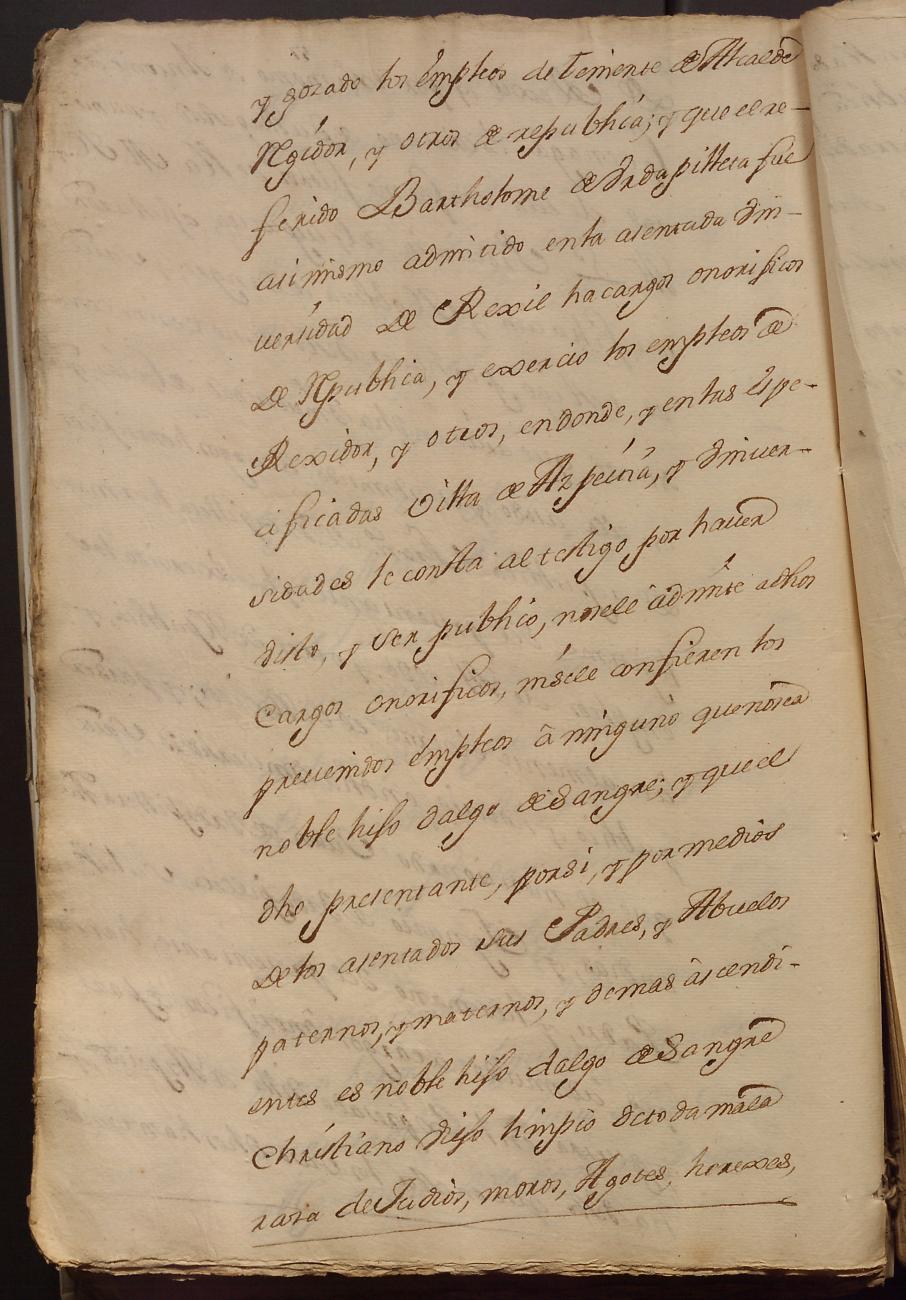 y gozado los émpleos de teniente de Alcalde
Rgídor, y otros de republíca; y que el re-
ferido Bartholome de Vrdapilleta fue
asimismo admitido en la asentada Vni-
uersidad de Rexil ha cargos onorificos
de Rpublica, y exercio los empleos de
Rexidor, y otros, en donde, y en las éspe-
cificadas Villa de Azpeitia, y Vniuer-
sidades le consta al testigo, por hauer
visto, y ser publico, no se le admite a dhos
Cargos onorificos, ni se le confieren los
preuenidos émpleos à ninguno que no sea
noble hijo dalgo de Sangre; y que el
dho presentante, por si, y por medios
de los asentados sus Padres, y Abuelos
paternos, y maternos, y demas àscendi-
entes es noble hijo dalgo de Sangre
Christiano viejo limpio de toda mala
raza de Judios, moros, Agotes, herexes,